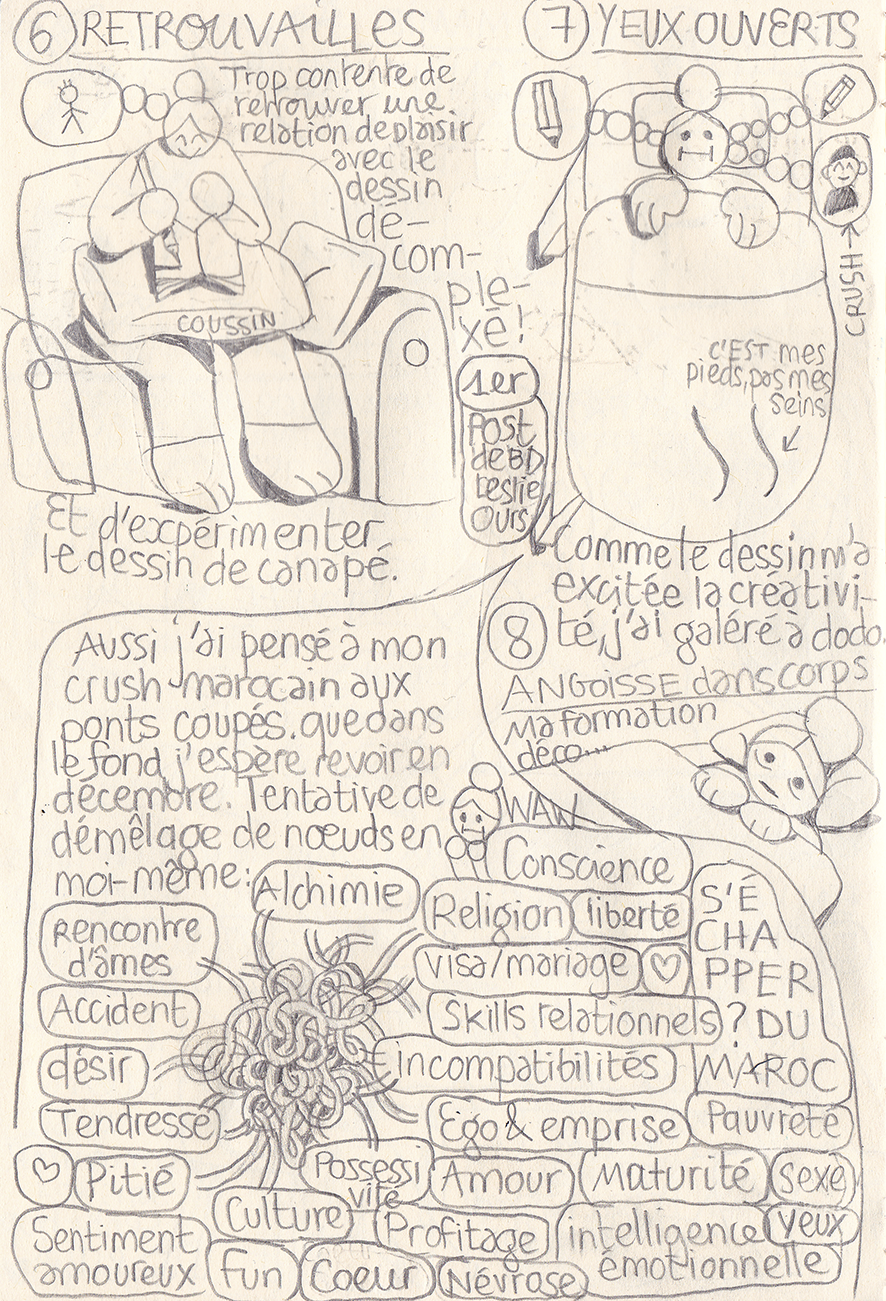 6 RETROUVAILLES
Trop contente de
retrouver une
relation de plaisir
avec le
dessin
dé-
com-
ple-
xé !
COUSSIN
1er
Post
de BD
Leslie
Ours
Et d'expérimenter
le dessin de canapé.
7 YEUX OUVERTS
CRUSH
C'EST mes
pieds, pas mes
seins
Comme le dessin m'a
excitée la créativi-
té, j'ai galéré à dodo.
Aussi j'ai pensé à mon
crush marocain aux
ponts coupés. que dans
le fond j'espère revoir en
décembre. Tentative de
démêlage de nœuds en
moi-même :
8
ANGOISSE dans corps
Ma formation
déco...
WAW
Alchimie
Rencontre
d'âmes
Accident
désir
Tendresse
Pitié
Sentiment
amoureux
Culture
Fun
Coeur
Possessi
vité
Névrose
Profitage
Amour
Conscience
Religion
liberté
visa/mariage
Skills relationnels
incompatibilités
Ego & emprise
Maturité
intelligence
émotionnelle
S'É
CHA
PPER
? DU
MAROC
Pauvreté
sexe
yeux